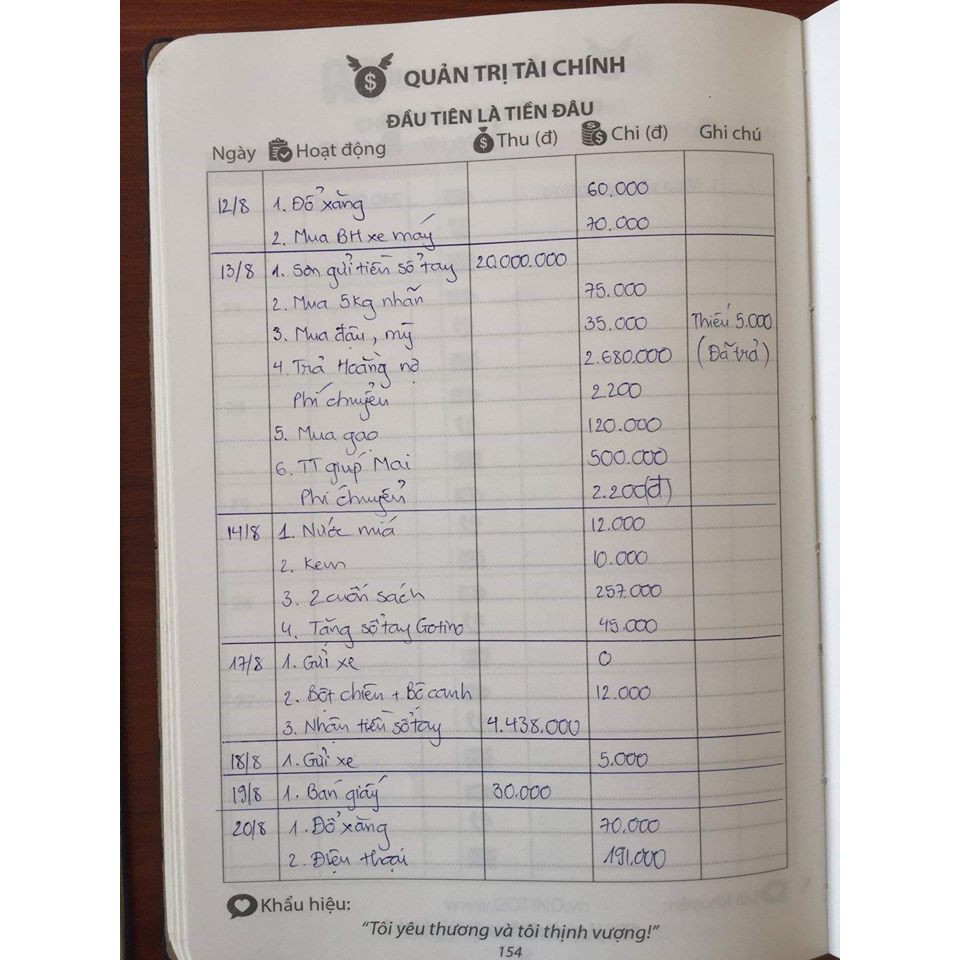 QUẢN TRỊ TÀI CHÍNH
ĐẦU TIÊN LÀ TIỀN ĐÂU
Ngày Hoạt động Thu (đ) Chi (đ) Ghi chú
12/8 1. Đổ xăng 60.000
2. Mua BH xe máy 70.000
13/8 1. Sơn gửi tiền sổ tay 20.000.000
2. Mua 5kg nhãn 75.000
3. Mua đậu, mỳ 35.000 Thiếu 5.000
4. Trả Hoàng nợ 2.680.000 (Đã trả)
Phí chuyển 2.200
5. Mua gạo 120.000
6. TT giúp Mai 500.000
Phí chuyển 2.200(đ)
14/8 1. Nước mía 12.000
2. Kem 10.000
3. 2 cuốn sách 257.000
4. Tặng sổ tay Gotino 45.000
17/8 1. Gửi xe 0
2. Bột chiên + Bò canh 12.000
3. Nhận tiền sổ tay 4.438.000
18/8 1. Gửi xe 5.000
19/8 1. Bán giấy 30.000
20/8 1. Đổ xăng 70.000
2. Điện thoại 191.000
Khẩu hiệu:
"Tôi yêu thương và tôi thịnh vượng!"
154